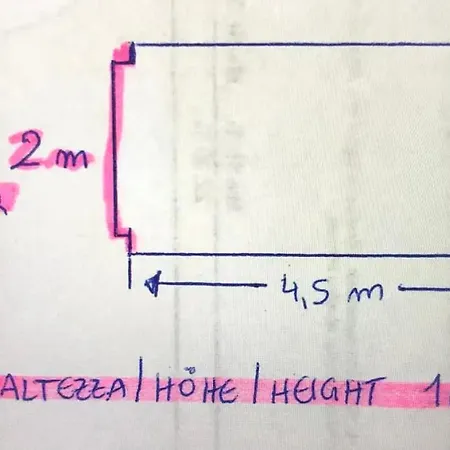 2 m
4,5 m
ALTEZZA / HÖHE / HEIGHT